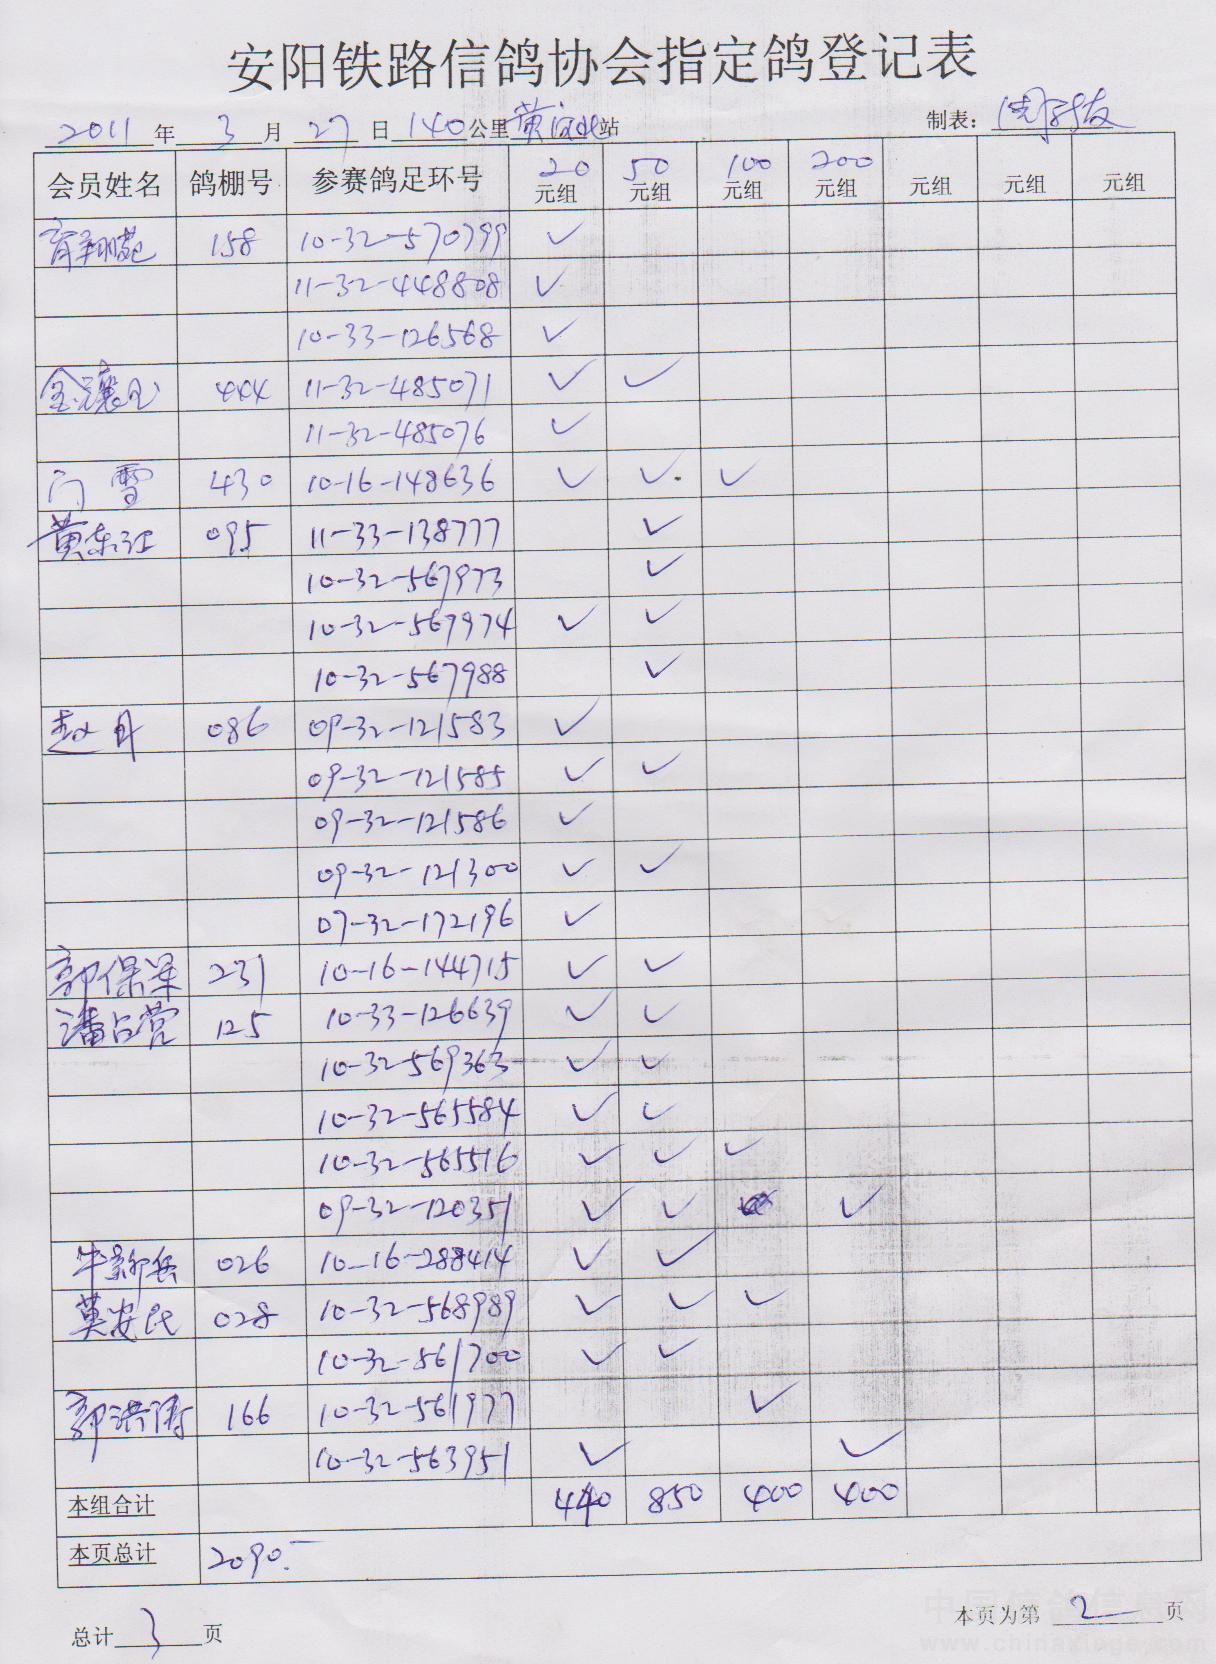 安阳铁路信鸽协会指定鸽登记表
2011年3月27日140公里黄河北站 制表：
会员姓名 鸽棚号 参赛鸽足环号 20元组 50元组 100元组 200元组 元组 元组 元组
育翔苑 158 10-32-570799 ✓
11-32-448808 ✓
10-33-126568 ✓
444 11-32-485071 ✓ ✓
11-32-485076 ✓
门雪 430 10-16-148636 ✓ ✓ ✓
黄东江 095 11-33-138777 ✓
10-32-567973 ✓
10-32-567974 ✓ ✓
10-32-567988 ✓
赵丹 086 09-32-121583 ✓
09-32-121585 ✓ ✓
09-32-121586 ✓
09-32-121300 ✓ ✓
07-32-172196 ✓
郭保军 231 10-16-144715 ✓ ✓
潘占营 125 10-33-126639 ✓ ✓
10-32-569363 ✓ ✓
10-32-565584 ✓ ✓
10-32-565516 ✓ ✓ ✓
09-32-120351 ✓ ✓ ✓
牛 026 10-16-288414 ✓ ✓
莫安民 028 10-32-568989 ✓ ✓ ✓
10-32-561700 ✓ ✓
郭洪涛 166 10-32-561977 ✓
10-32-563951 ✓ ✓
本组合计 440 850 400 400
本页总计 2090.-
总计3页 本页为第2页
www.chinaxinge.com